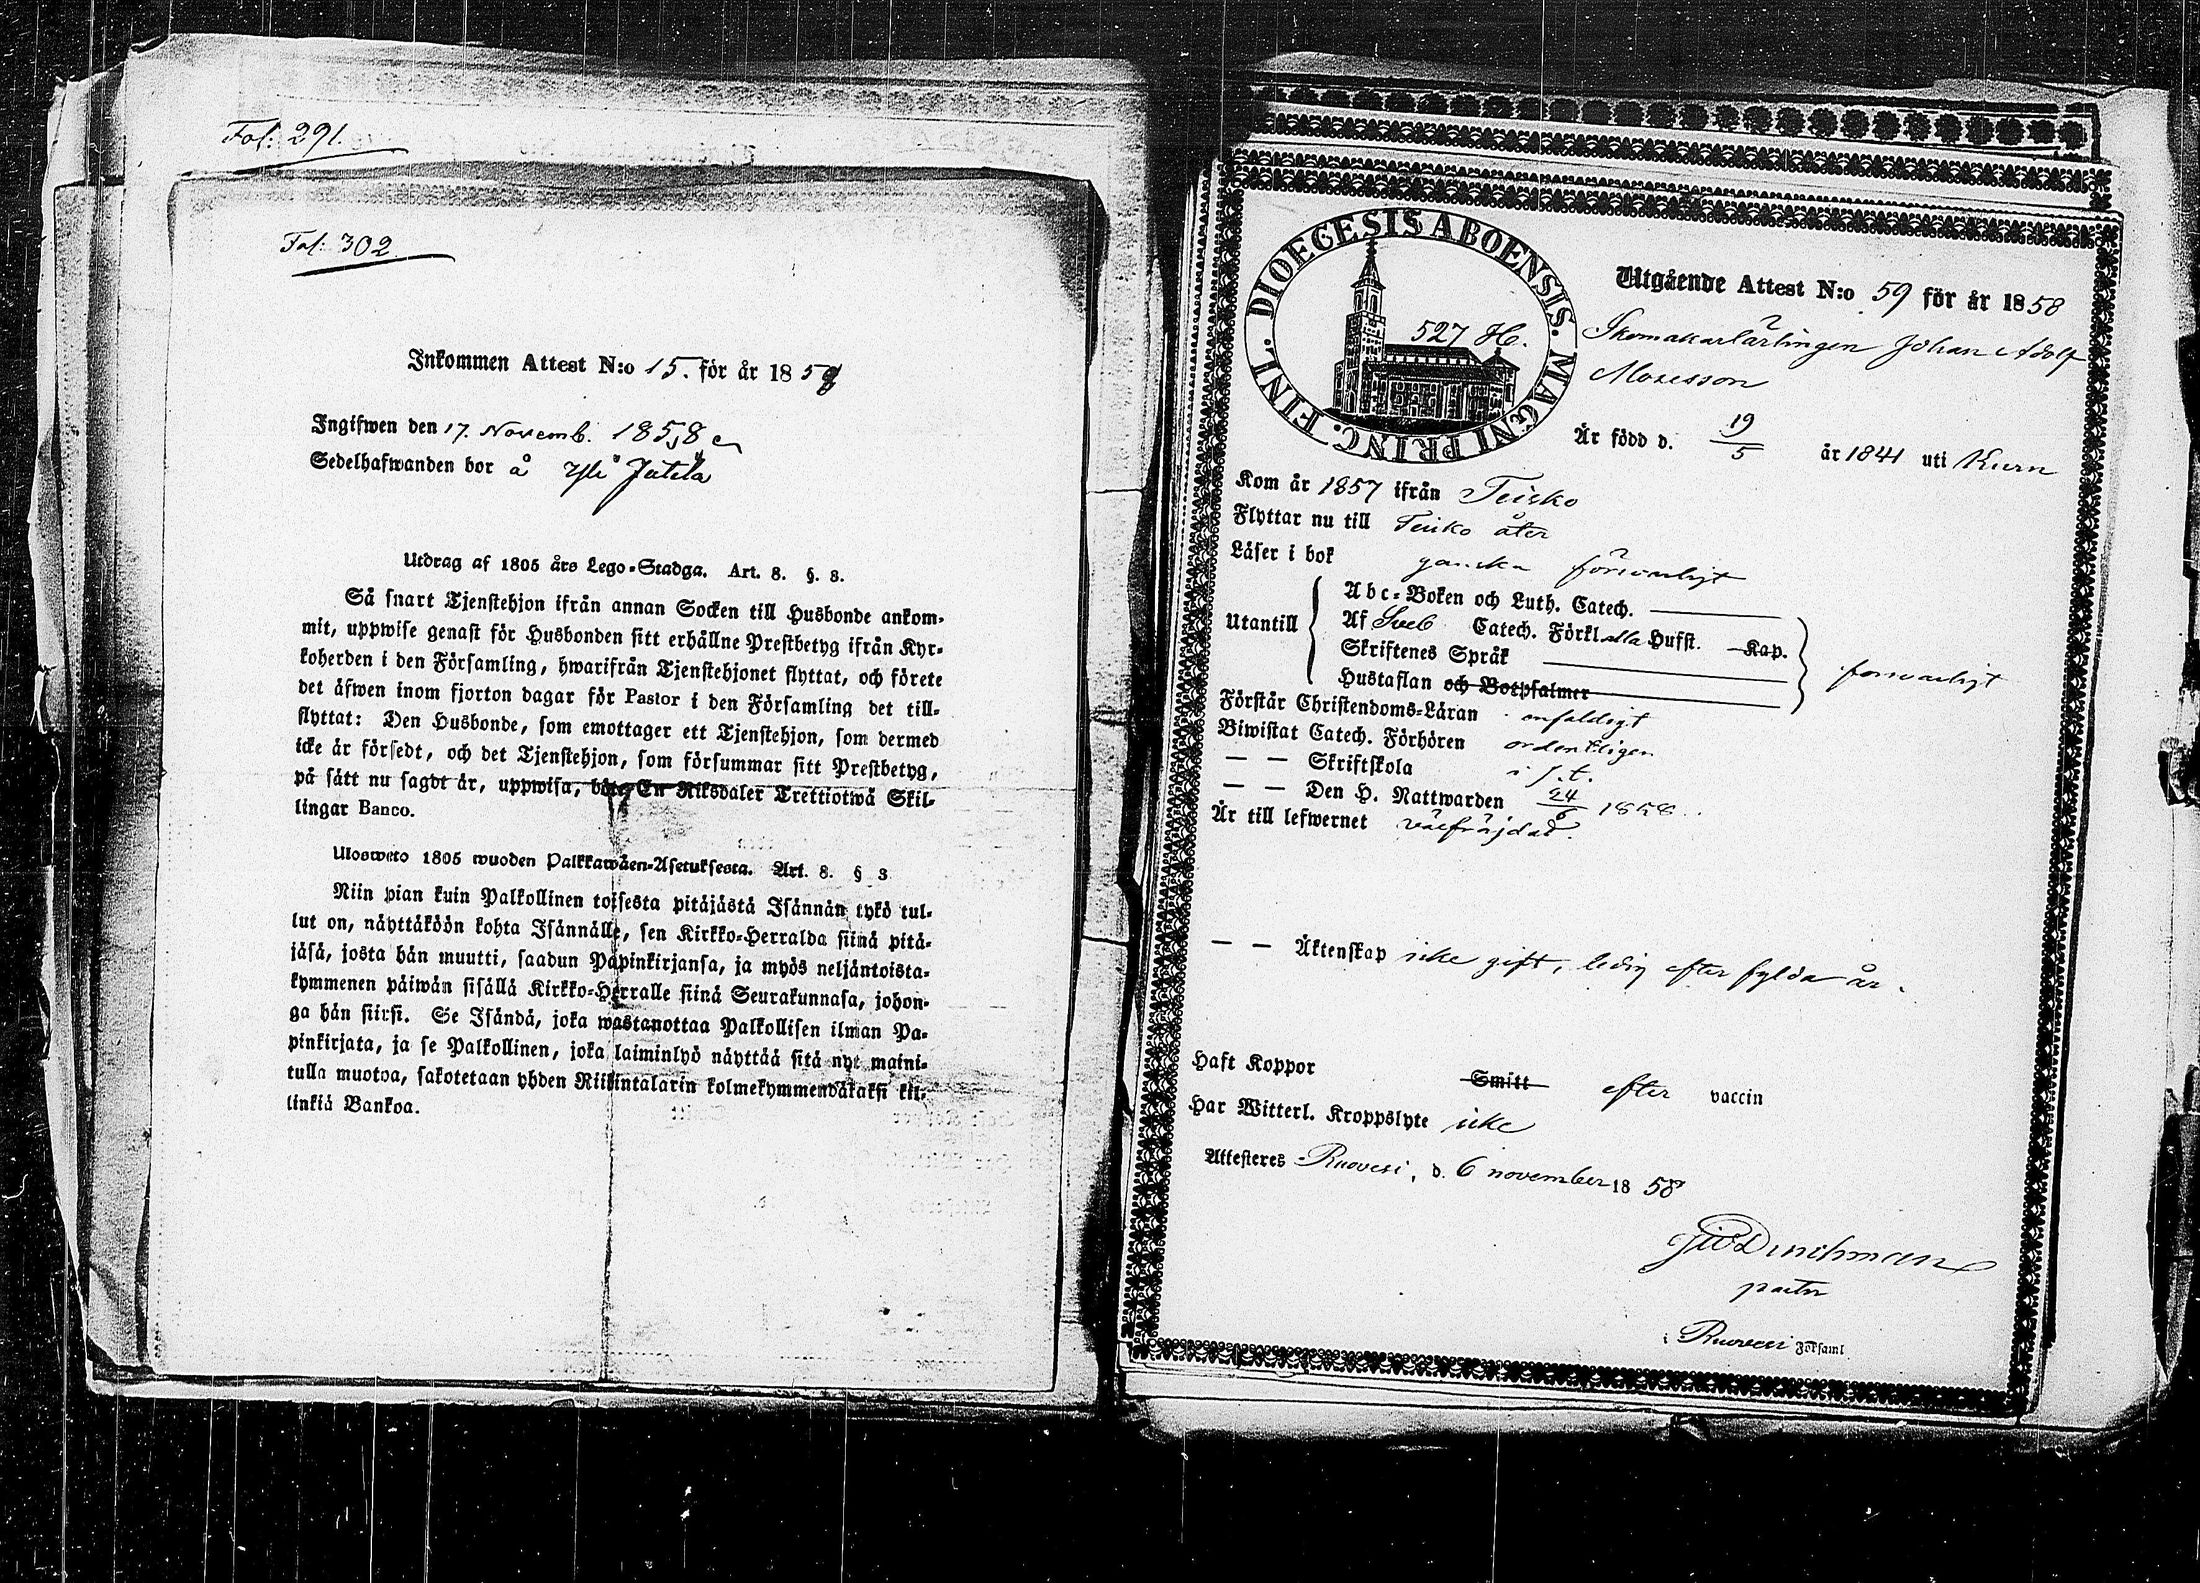 Fol: 291.
Fol: 302.
Inkommen Attest N:o 15. för år 1859
Ingifwen den 17. Novemb. 1858
Sedelhafwanden bor å Yli Jutila
Utdrag af 1805 års Lego-Stadga. Art. 8. §. 8.
Så snart Tjenstehjon ifrån annan Socken till Husbonde ankom-
mit, uppwise genast för Husbonden sitt erhållne Prestbetyg ifrån Kyr-
koherden i den Församling, hwarifrån Tjenstehjonet flyttat, och förete
det äfwen inom fjorton dagar för Pastor i den Församling det till-
flyttat: Den Husbonde, som emottager ett Tjenstehjon, som dermed
icke är försedt, och det Tjenstehjon, som försummar sitt Prestbetyg,
på sätt nu sagdt är, uppwisa, böte En Riksdaler Trettiotwå Skil-
lingar Banco.
Ulosweto 1805 wuoden Palkkawäen-Asetuksesta. Art. 8. § 3
Niin pian kuin Palkollinen toisesta pitäjästä Isännän tykö tul-
lut on, näyttäköön kohta Isännälle, sen Kirkko-Herralda siinä pitä-
jäsä, josta hän muutti, saadun Papinkirjansa, ja myös neljäntoista-
kymmenen päiwän sisällä Kirkko-Herralle siinä Seurakunnasa, johon-
ga hän siirsi. Se Isändä, joka wastanottaa Palkollisen ilman Pa-
pinkirjata, ja se Palkollinen, joka laiminlyö näyttää sitä nyt maini-
tulla muotoa, sakotetaan yhden Riikintalarin kolmekymmendäkaksi kil-
linkiä Bankoa.
DIOECESIS ABOENSIS. MAGNI PRINC. FINL.
527 H.
Utgående Attest N:o 59 för år 1858
Skomakarlärlingen Johan Adolf
Mosesson
Är född d. 19/5 år 1841 uti Kuru
Kom år 1857 ifrån Teisko
Flyttar nu till Teisko åter
Läser i bok ganska försvarligt
Utantill
Abc-Boken och Luth. Catech.
Af Sveb Catech. Förkl. alla Hufst. Kap.
Skriftenes Språk
Hustaflan och Botpsalmer
försvarligt
Förstår Christendoms-Läran enfaldigt
Biwistat Catech. Förhören ordentligen
— — Skriftskola i s. t.
— — Den H. Nattwarden 24/6 1858.
Är till lefwernet välfräjdad.
— — Äktenskap icke gift, ledig efter fylda år.
Haft Koppor Smitt efter vaccin
Har Witterl. Kroppslyte icke
Attesteres Ruovesi, d. 6 november 1858
pastor
i Ruovesi Församl.